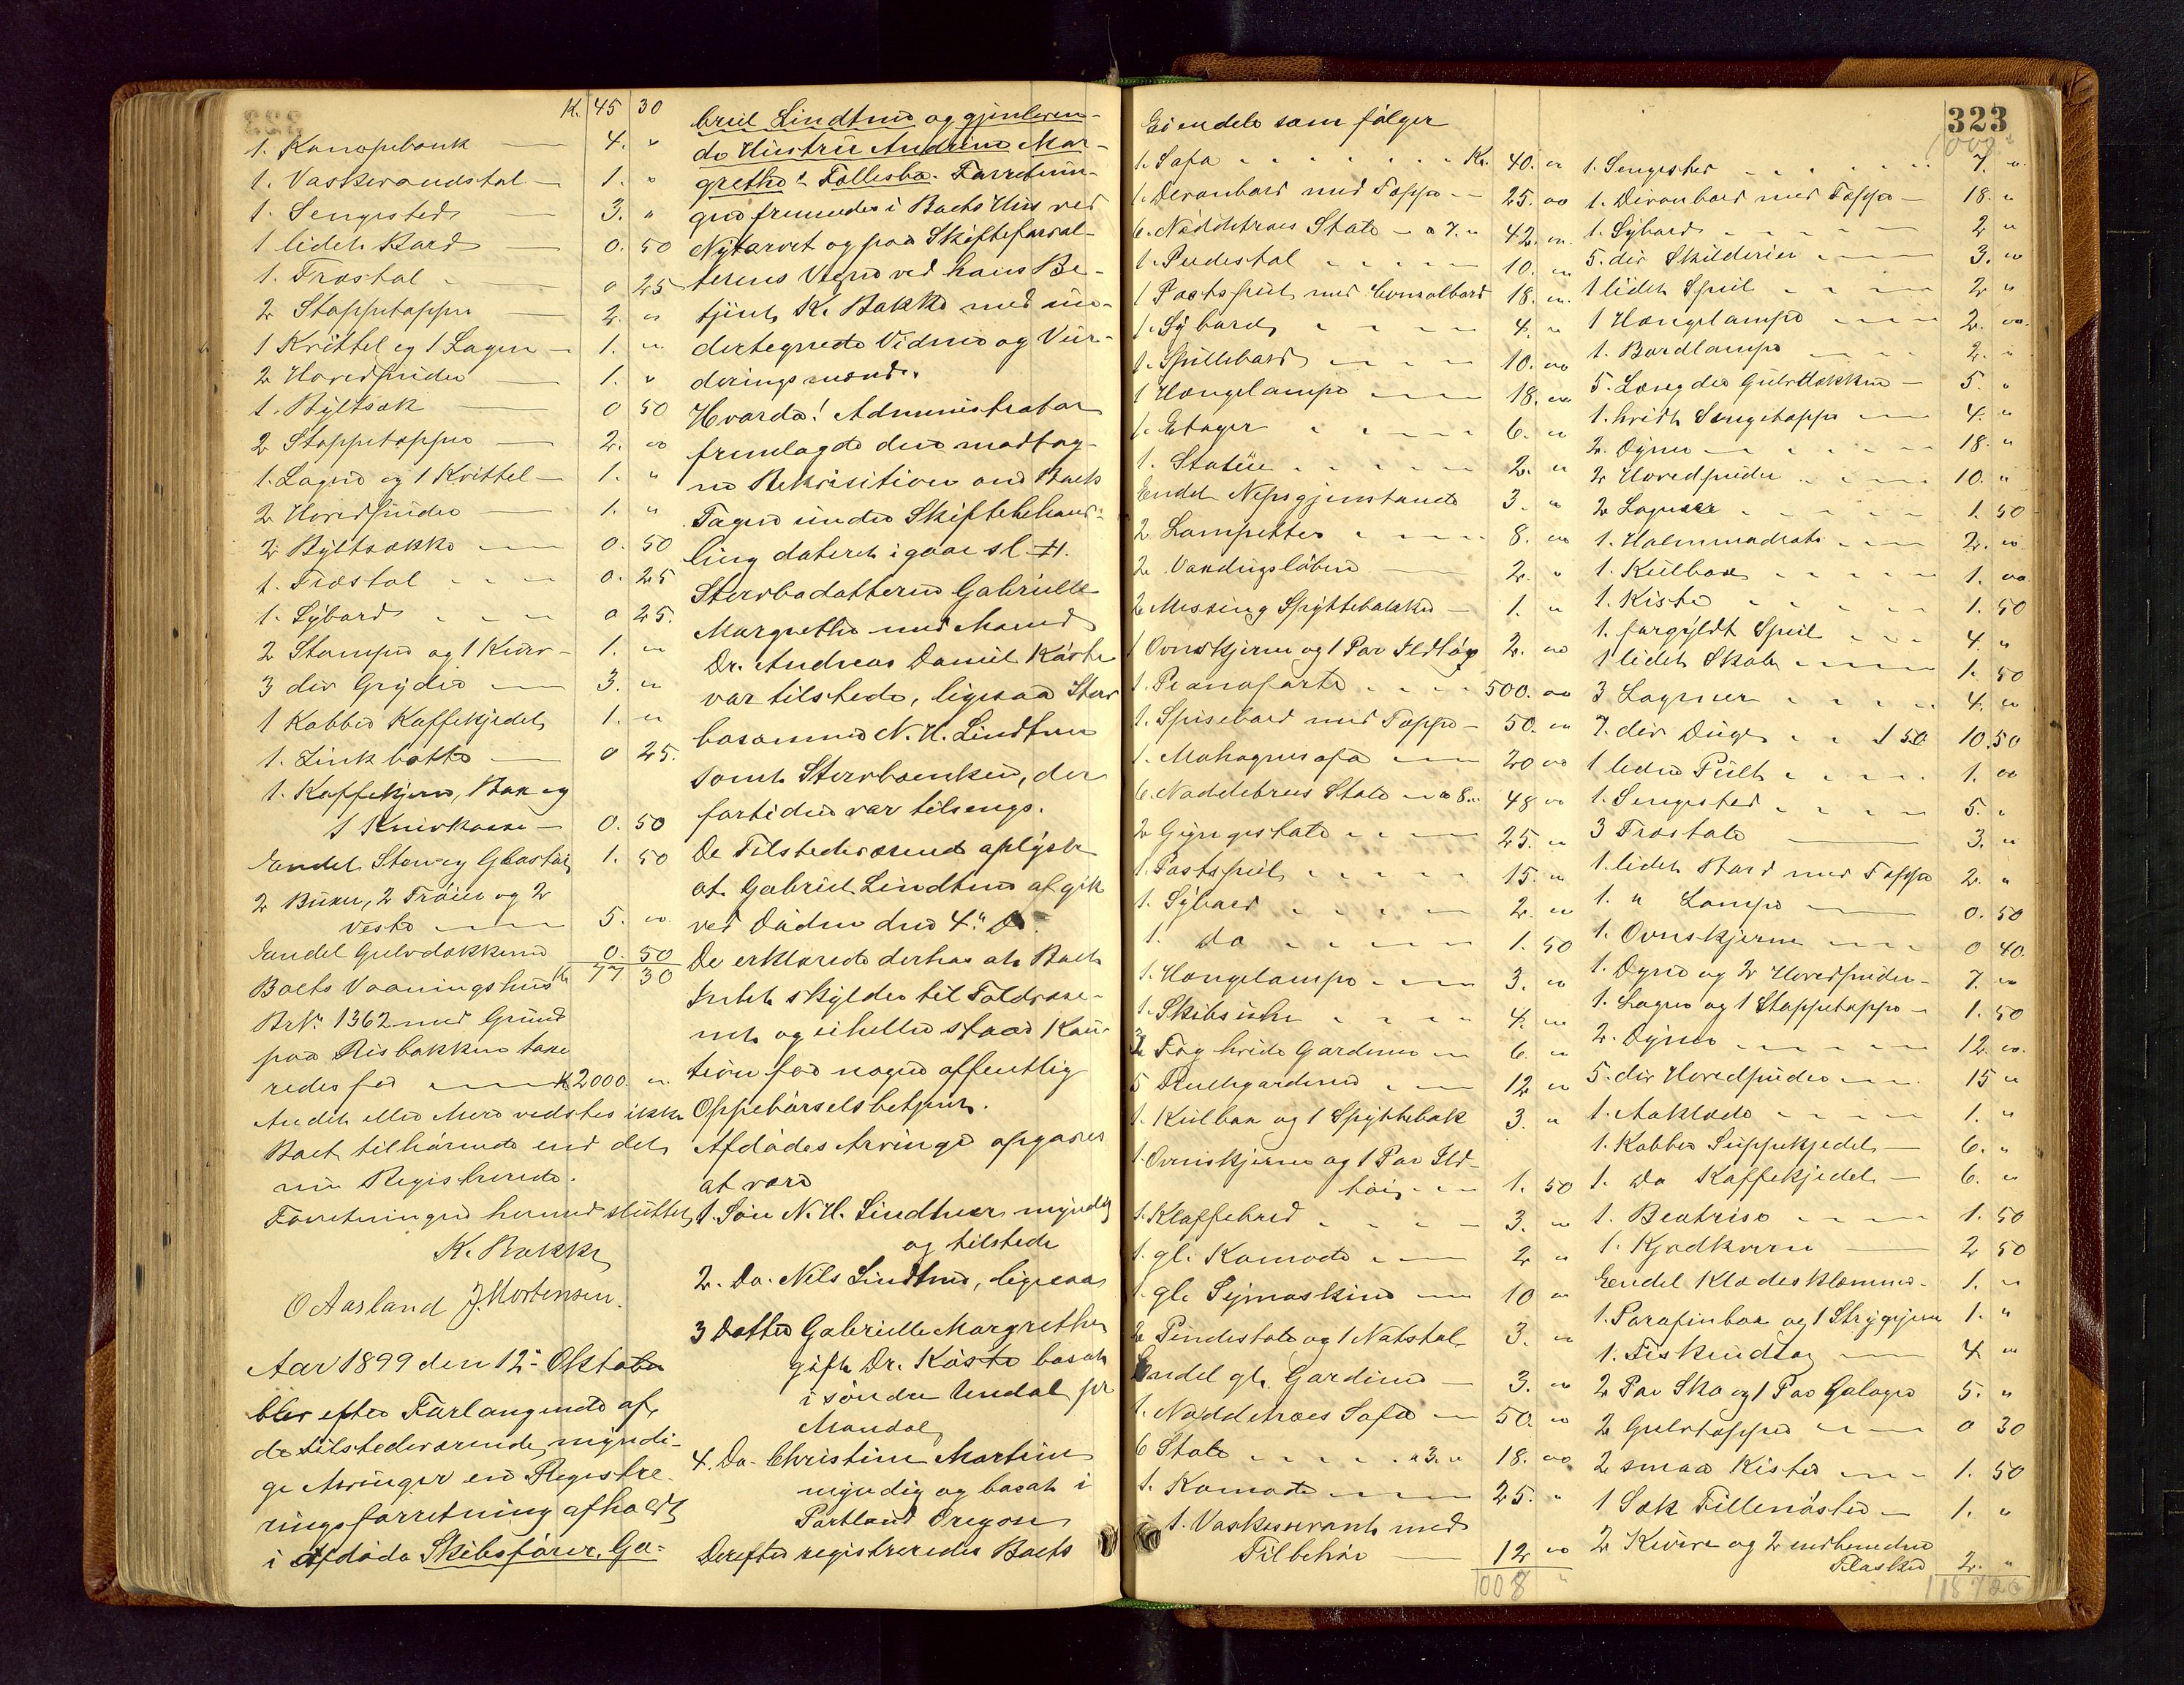 K. 45 30
1. Kanapebænk 4. "
1. Vaskevandstol 1. "
1. Sengested 3. "
1 lidet Bord 0. 50
1. Træstol 0 25
2 Stoppetæpper 2. "
1 Krittel og 1 Lagen 1. "
2 Hovedpuder 1. "
1. Byltsæk 0 50
2 Stoppetæpper 2. "
1. Lagen og 1 Krittel 1. "
2 Hovedpuder 1. "
2 Byltsække 0. 50
1. Træstol 0. 25
1. Sybord 0 25.
2 Stamper og 1 Kurv 1. "
3 div Gryder 3. "
1 Kobber Kaffekjedel 1. "
1. Zinkbøtte 0 25.
1. Kaffekjern, Bax og
1 Knivkasse 0. 50
Endel Sten og Glastøi 1. 50
2 Buxer, 2 Trøier og 2
Veste 5. "
Endel Gulvdækken 0. 50
Boets Vaaningshus K 77 30
BrN: 1362 med Grund
paa Risbakken taxe
redes for K 2000. "
Andet eller Mere vedstes ikke
Boet tilhørende end det
nu Registrerede.
Forretningen hermed sluttet
K. Bakke
O Aasland J. Mortensen.
Aar 1899 den 12te Oktober
blev efter Forlangende af
de tilstedeværende myndi-
ge Arvinger en Registre-
ringsforretning afholdt
i Afdøde Skibsfører Ga-
briel Lindtner og gjenleven-
de Hustru Andrine Mar-
grethe f. Follesbø. Forretnin-
gen fremmedes i Boets Hus ved
Nytorvet og paa Skifteforval-
terens Vegne ved hans Be-
tjent K. Bakke med un-
dertegnede Vidner og Vur-
deringsmænd.
Hvorda! Administrator
fremlagde den modtag-
ne Rekvisition om Boets
Tagen under Skiftebehand-
ling dateret igaar sl. H.
Stervbodatteren Gabrielle
Margrethe med Mand
Dr. Andreas Daniel Kaste
var tilstede, ligesaa Sterv
bosønnen N. H. Lindtner
samt Stervboenken, der
fortiden var tilsengs.
De Tilstedeværende oplyste
at Gabriel Lindtner afgik
ved Døden den 4" Ds.
De erklærede derhos at Boet
Intet skylder til Toldvæse-
net og ei heller staar Kau-
tion for nogen offentlig
Oppebørselsbetjent.
Afdødes Arvinger opgaves
at være
1. Søn N. H. Lindtner myndig
og tilstede
2. Do. Nils Lindtner, ligesaa
3 Datter Gabrielle Margrethe
gift Dr. Kaste bosat
i søndre Undal pr
Mandal
4. Do. Christine Martine
myndig og bosat i
Portland Oregon
Derefter registreredes Boets
Eiendele som følger
1. Sofa Kr. 40. "
1. Divanbord med Tæppe 25. "
6. Nøddetræes Stole a 7. " 42. "
1. Piedestal 10. "
1 Postspeil med Consolbord 18. "
1. Sybord 4. "
1. Spillebord 10. "
1 Hængelampe 18. "
1. Etager 6. "
1. Statue 2. "
Endel Nipsgjenstande 3. "
2 Lampetter 8. "
2 Vandingsløbere 2. "
2 Messing Spyttebakker 1. "
1 Ovnskjerm og 1 Par Ildtøy 2. "
1. Pianoforte 500. "
1. Spisebord med Tæppe 50. "
1. Mahognisofa 20 "
6. Nøddetræes Stole a 8. " 48 "
2 Gyngestole 25. "
1. Postspeil 15. "
1. Sybord 2. "
1. do 1. 50
1. Hængelampe 3. "
1. Skibsuhr 4. "
3 Fag hvide Gardiner 6. "
5 Rullegardiner 12 "
1. Kulbax og 1 Spyttebak 3. "
1 Ovnskjerm og 1 Par Ild-
tøi 1. 50
1. Klaffebord 3. "
1. gl. Komode 2 "
1. gl. Symaskine 10 "
2 Pindestole og 1 Natstol 3. "
Endel gl. Gardiner 3. "
1. Nøddetræes Sofa 50. "
6 Stole a 3. " 18. "
1. Komode 25. "
1. Vaskeservant med
Tilbehør 12 "
1008 "
323
1008 "
1. Sengested 7. "
1. Divanbord med Tæppe 18. "
1. Sybord 2 "
5. div Skilderier 3. "
1 lidet Speil 2 "
1 Hængelampe 2. "
1. Bordlampe 2. "
5. Længder Gulvdækken 5. "
1. hvidt Sengetæppe 4. "
2. Dyner 18. "
2 Hovedpuder 10. "
2 Lagener 1. 50
1. Halmmadrats 2. "
1. Kulbox 1. "
1. Kiste 1. 50
1. forgyldt Speil 4. "
1 lidet Skab 1. 50
3 Lagener 4. "
7. div Duge 1 50 10. 50
1 liden Pult 1. "
1. Sengested 5. "
3 Træstole 3. "
1. lidet Bord med Tæppe 2. "
1. " Lampe 0. 50
1. Ovnskjerm 0 40.
1. Dyne og 2 Hovedpuder 7. "
1. Lagen og 1 Stoppetæppe 1. 50
2. Dyner 12. "
5. div Hovedpuder 15 "
1. Aaklæde 1. "
1. Kobber Suppekjedel 6. "
1. Do Kaffekjedel 6. "
1. Beatrise 1. 50
1. Kjødkvern 2 50
Endel Klædesklemmer 1. "
1. Parafinbax og 1 Strygejern 1. "
1. Fiskendtøy 4 "
2 Par Sko og 1 Par Galoger 5. "
2 Gulvtæpper 0 30
2 smaa Kister 1. 50
1 Sæk Fillenøster 1. "
2 Kurve og 2 indbundne
Flasker 2. "
1187 20